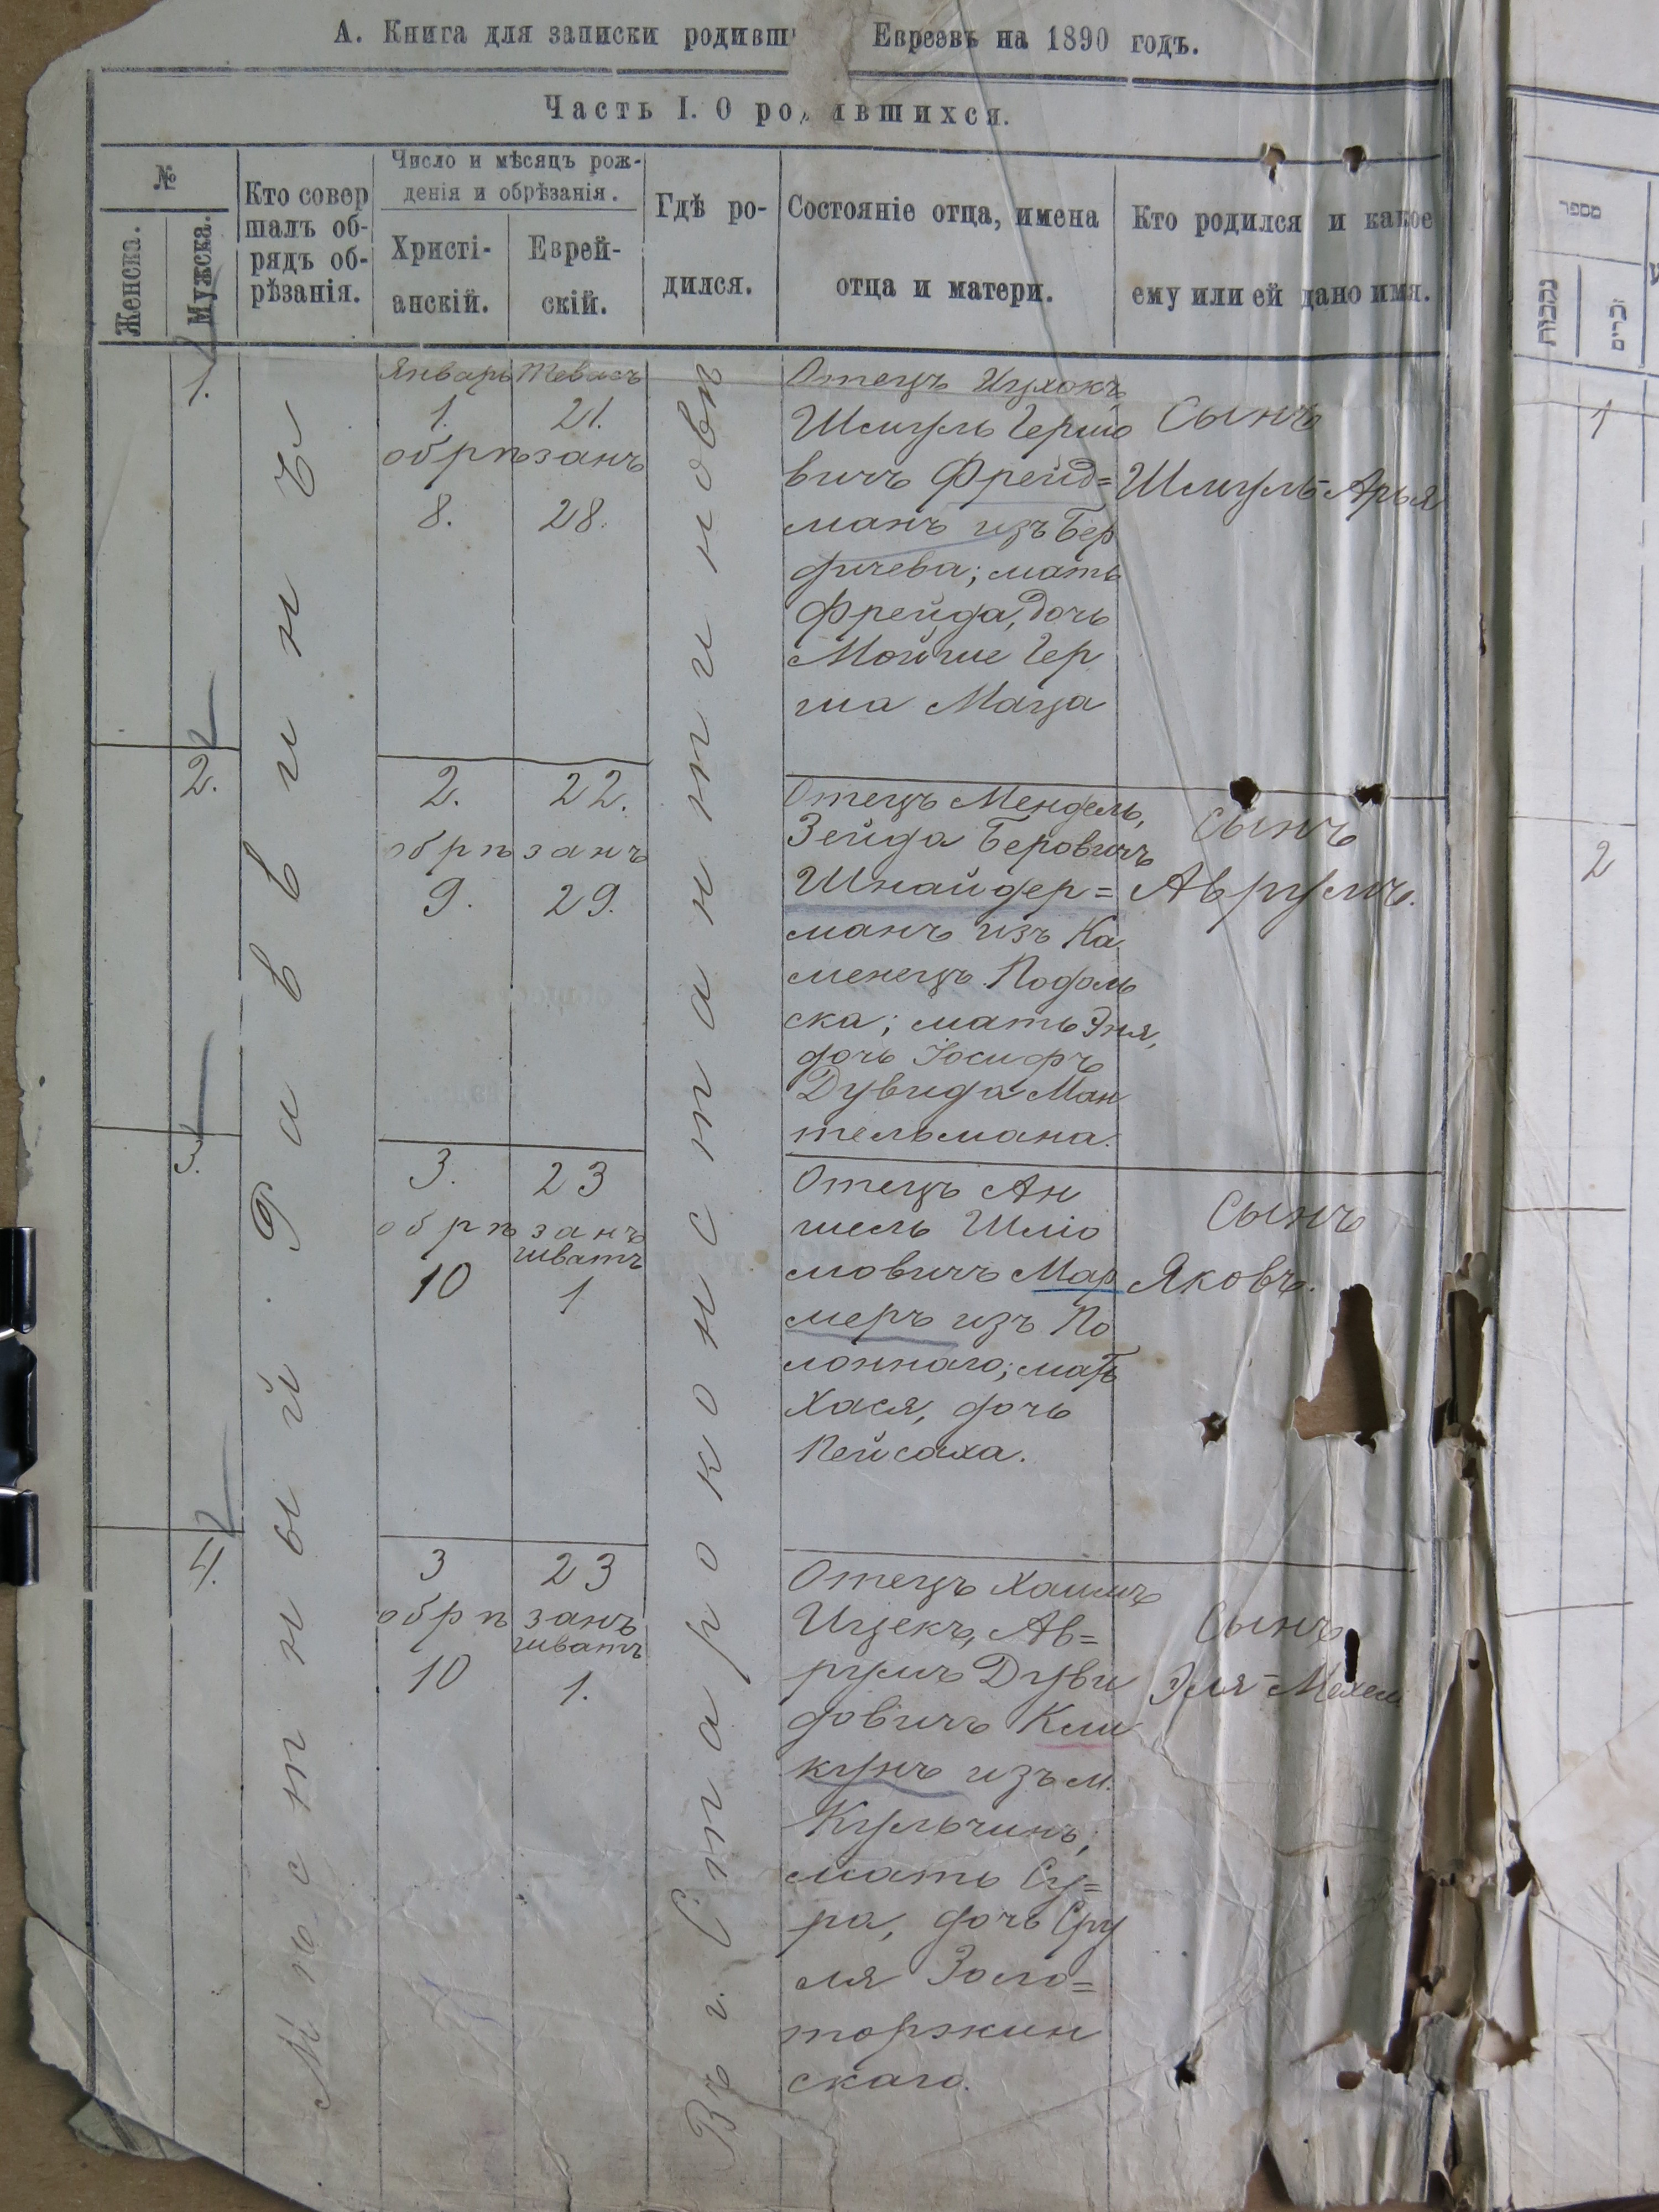 А. Книга для записки родивш Евреевъ на 1890 годъ.
Часть I. О родившихся.
№
Женска.
Мужска.
Кто совер
шалъ об-
рядъ об-
рѣзанія.
Число и мѣсяцъ рож-
денія и обрѣзанія.
Христі-
анскій.
Еврей-
скій.
Гдѣ ро-
дился.
Состояніе отца, имена
отца и матери.
Кто родился и какое
ему или ей дано имя.
Мѣстный раввинъ
Въ г. Староконстантиновѣ
1.
Январь Тевасъ
1. 21.
обрѣзанъ
8. 28.
Отецъ Ицхокъ,
Шмуль Гершо
вичъ Фрейд=
манъ изъ Бер
дичева; мать
Фрейда, дочь
Мойше Гер
ша Маца
Сынъ
Шмуль-Арья
2.
2. 22.
обрѣзанъ
9. 29.
Отецъ Мендель,
Зейда Беровичъ
Шнайдер=
манъ изъ Ка
менецъ Подоль
ска; мать Эня,
дочь Іосифъ
Дувида Ман
тельмана.
Сынъ
Аврумъ.
3.
3. 23
обрѣзанъ
шватъ
10 1
Отецъ Ан
шель Шліо
мовичъ Мар
меръ изъ По
лоннаго; мать
Хася, дочь
Пейсаха.
Сынъ
Яковъ.
4.
3 23
обрѣзанъ
шватъ
10 1.
Отецъ Хаимъ
Ицекъ, Ав=
румъ Дуви
довичъ Кли
кунъ изъ м.
Кульчинъ;
мать Су=
ра, дочь Сру
ля Золо=
торжин
скаго.
Сынъ
Эля-Мехель
מספר
נקבות
זכרים
1
2